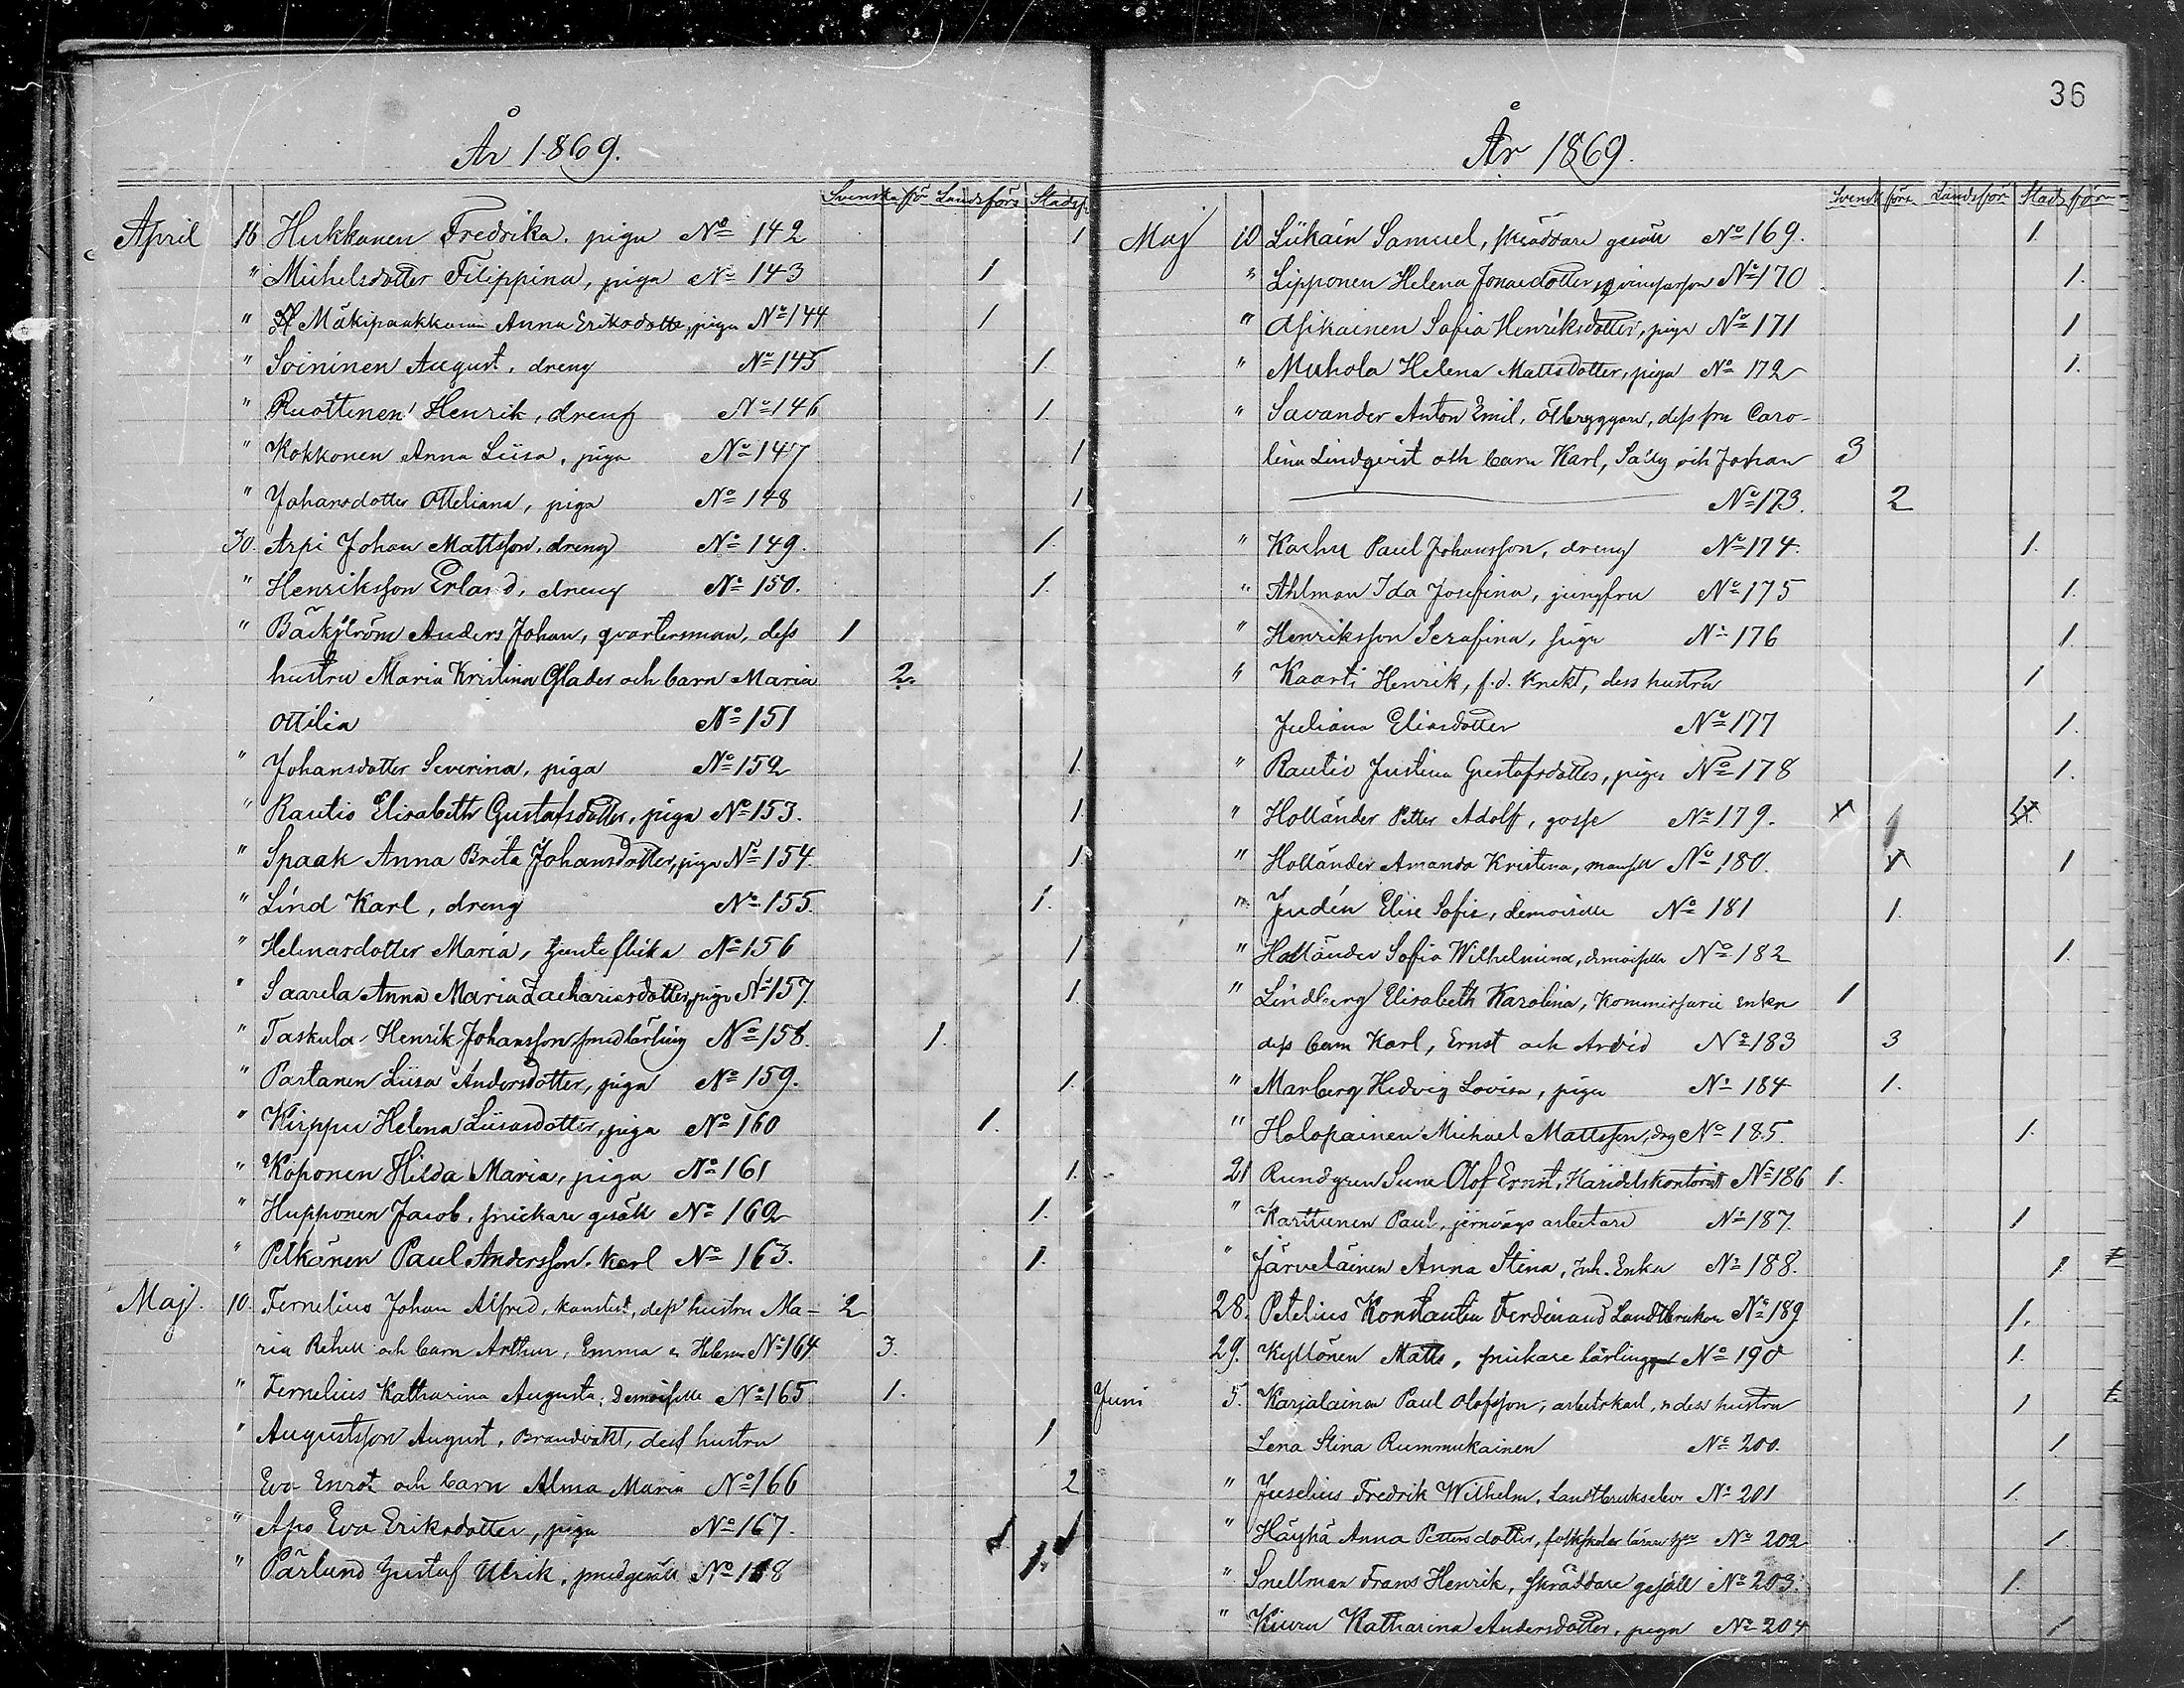 År 1869.
Svenska för Landsförs Stadsf
April 16 Hukkanen Fredrika. piga No 142 1
" Michelsdotter Filippina, piga No 143 1
" Mäkipaakkanen Anna Eriksdotter, piga No 144 1
" Soininen August, dreng No 145 1.
" Ruottinen Henrik, dreng No 146 1.
" Kokkonen Anna Liisa, piga No 147 1
" Johansdotter Otteliana, piga No 148 1
30. Arpi Johan Mattsson, dreng No 149. 1.
" Henriksson Erland, dreng No 150. 1.
" Bäckström Anders Johan, qvartersman, dess 1
hustru Maria Kristina Glader och barn Maria 2.
Ottilia No 151
" Johansdotter Severina, piga No 152 1.
" Rautio Elisabeth Gustafsdotter, piga No 153. 1.
" Spaak Anna Brita Johansdotter, piga No 154. 1.
" Lind Karl, dreng No 155. 1.
" Helenasdotter Maria, tjenteflicka No 156 1
" Saarela Anna Maria Zachariasdotter, piga No 157. 1.
" Taskula Henrik Johansson, smedlärling No 158. 1.
" Partanen Liisa Andersdotter, piga No 159. 1.
" Kirppu Helena Liisasdotter, piga No 160 1.
" Koponen Hilda Maria, piga No 161 1.
" Hupponen Jacob, snickare gesäll No 162 1.
" Pitkänen Paul Andersson. Karl No 163. 1.
Maj. 10. Fernelius Johan Alfred, kanslist, dess hustru Ma- 2
ria Rehell och barn Arthur, Emma o Helena No 164 3.
" Fernelius Katharina Augusta, Demoiselle No 165. 1.
" Augustsson August, Brandvakt, dess hustru 1
Eva Enrot och barn Alma Maria No 166 2
" Apo Eva Eriksdotter, piga No 167. 1
" Pärlund Gustaf Ulrik, smedgesäll No 168 1.
36
År 1869.
Svensk förs Landsför Stadsför
Maj 10 Liikain Samuel, skräddare gesäll No 169. 1.
" Lipponen Helena Jonasdotter, qvinsperson No 170 1.
" Asikainen Sofia Henriksdotter, piga No 171 1
" Muhola Helena Mattsdotter, piga No 172 1.
" Savander Anton Emil, ölbryggare, dess fru Caro-
lina Lindqvist och barn Karl, Sally och Johan 3
No 173. 2
" Kachu Paul Johansson, dreng No 174. 1.
" Ahlman Ida Josefina, jungfru No 175 1.
" Henriksson Serafina, piga No 176 1.
" Kaarti Henrik, f.d. Knekt, dess hustru 1
Juliana Eliasdotter No 177 1.
" Rautio Justina Gustafsdotter, piga No 178 1.
" Holländer Petter Adolf, gosse No 179. 1
" Holländer Amanda Kristina, mamsell No 180. 1
" Judén Elise Sofie, demoiselle No 181 1.
" Holländer Sofia Wilhelmina, demoiselle No 182 1.
" Lindberg Elisabeth Karolina, Kommissarie enka 1
dess barn Karl, Ernst och Arvid No 183 3
" Marberg Hedvig Lovisa, piga No 184 1.
" Holopainen Michael Mattsson, dng No 185. 1.
21 Rundgren Sune Olof Ernst, Handelskontorist No 186 1.
" Karttunen Paul, jernvägs arbetare No 187. 1
" Järveläinen Anna Stina, Inh. Enka No 188. 1
28. Petelius Konstantin Ferdinand Landtbrukare No 189 1.
29. Kyllönen Matts, snickare lärling No 190 1.
Juni 5. Karjalainen Paul Olofsson, arbetskarl, o dess hustru 1
Lena Stina Rummukainen No 200. 1
" Juselius Fredrik Wilhelm, Landtbrukselev No 201 1.
" Häyhä Anna Pettersdotter, No 202 1.
" Snellman Frans Henrik, skräddare gesäll No 203. 1.
" Kiuru Katharina Andersdotter, piga No 204 1